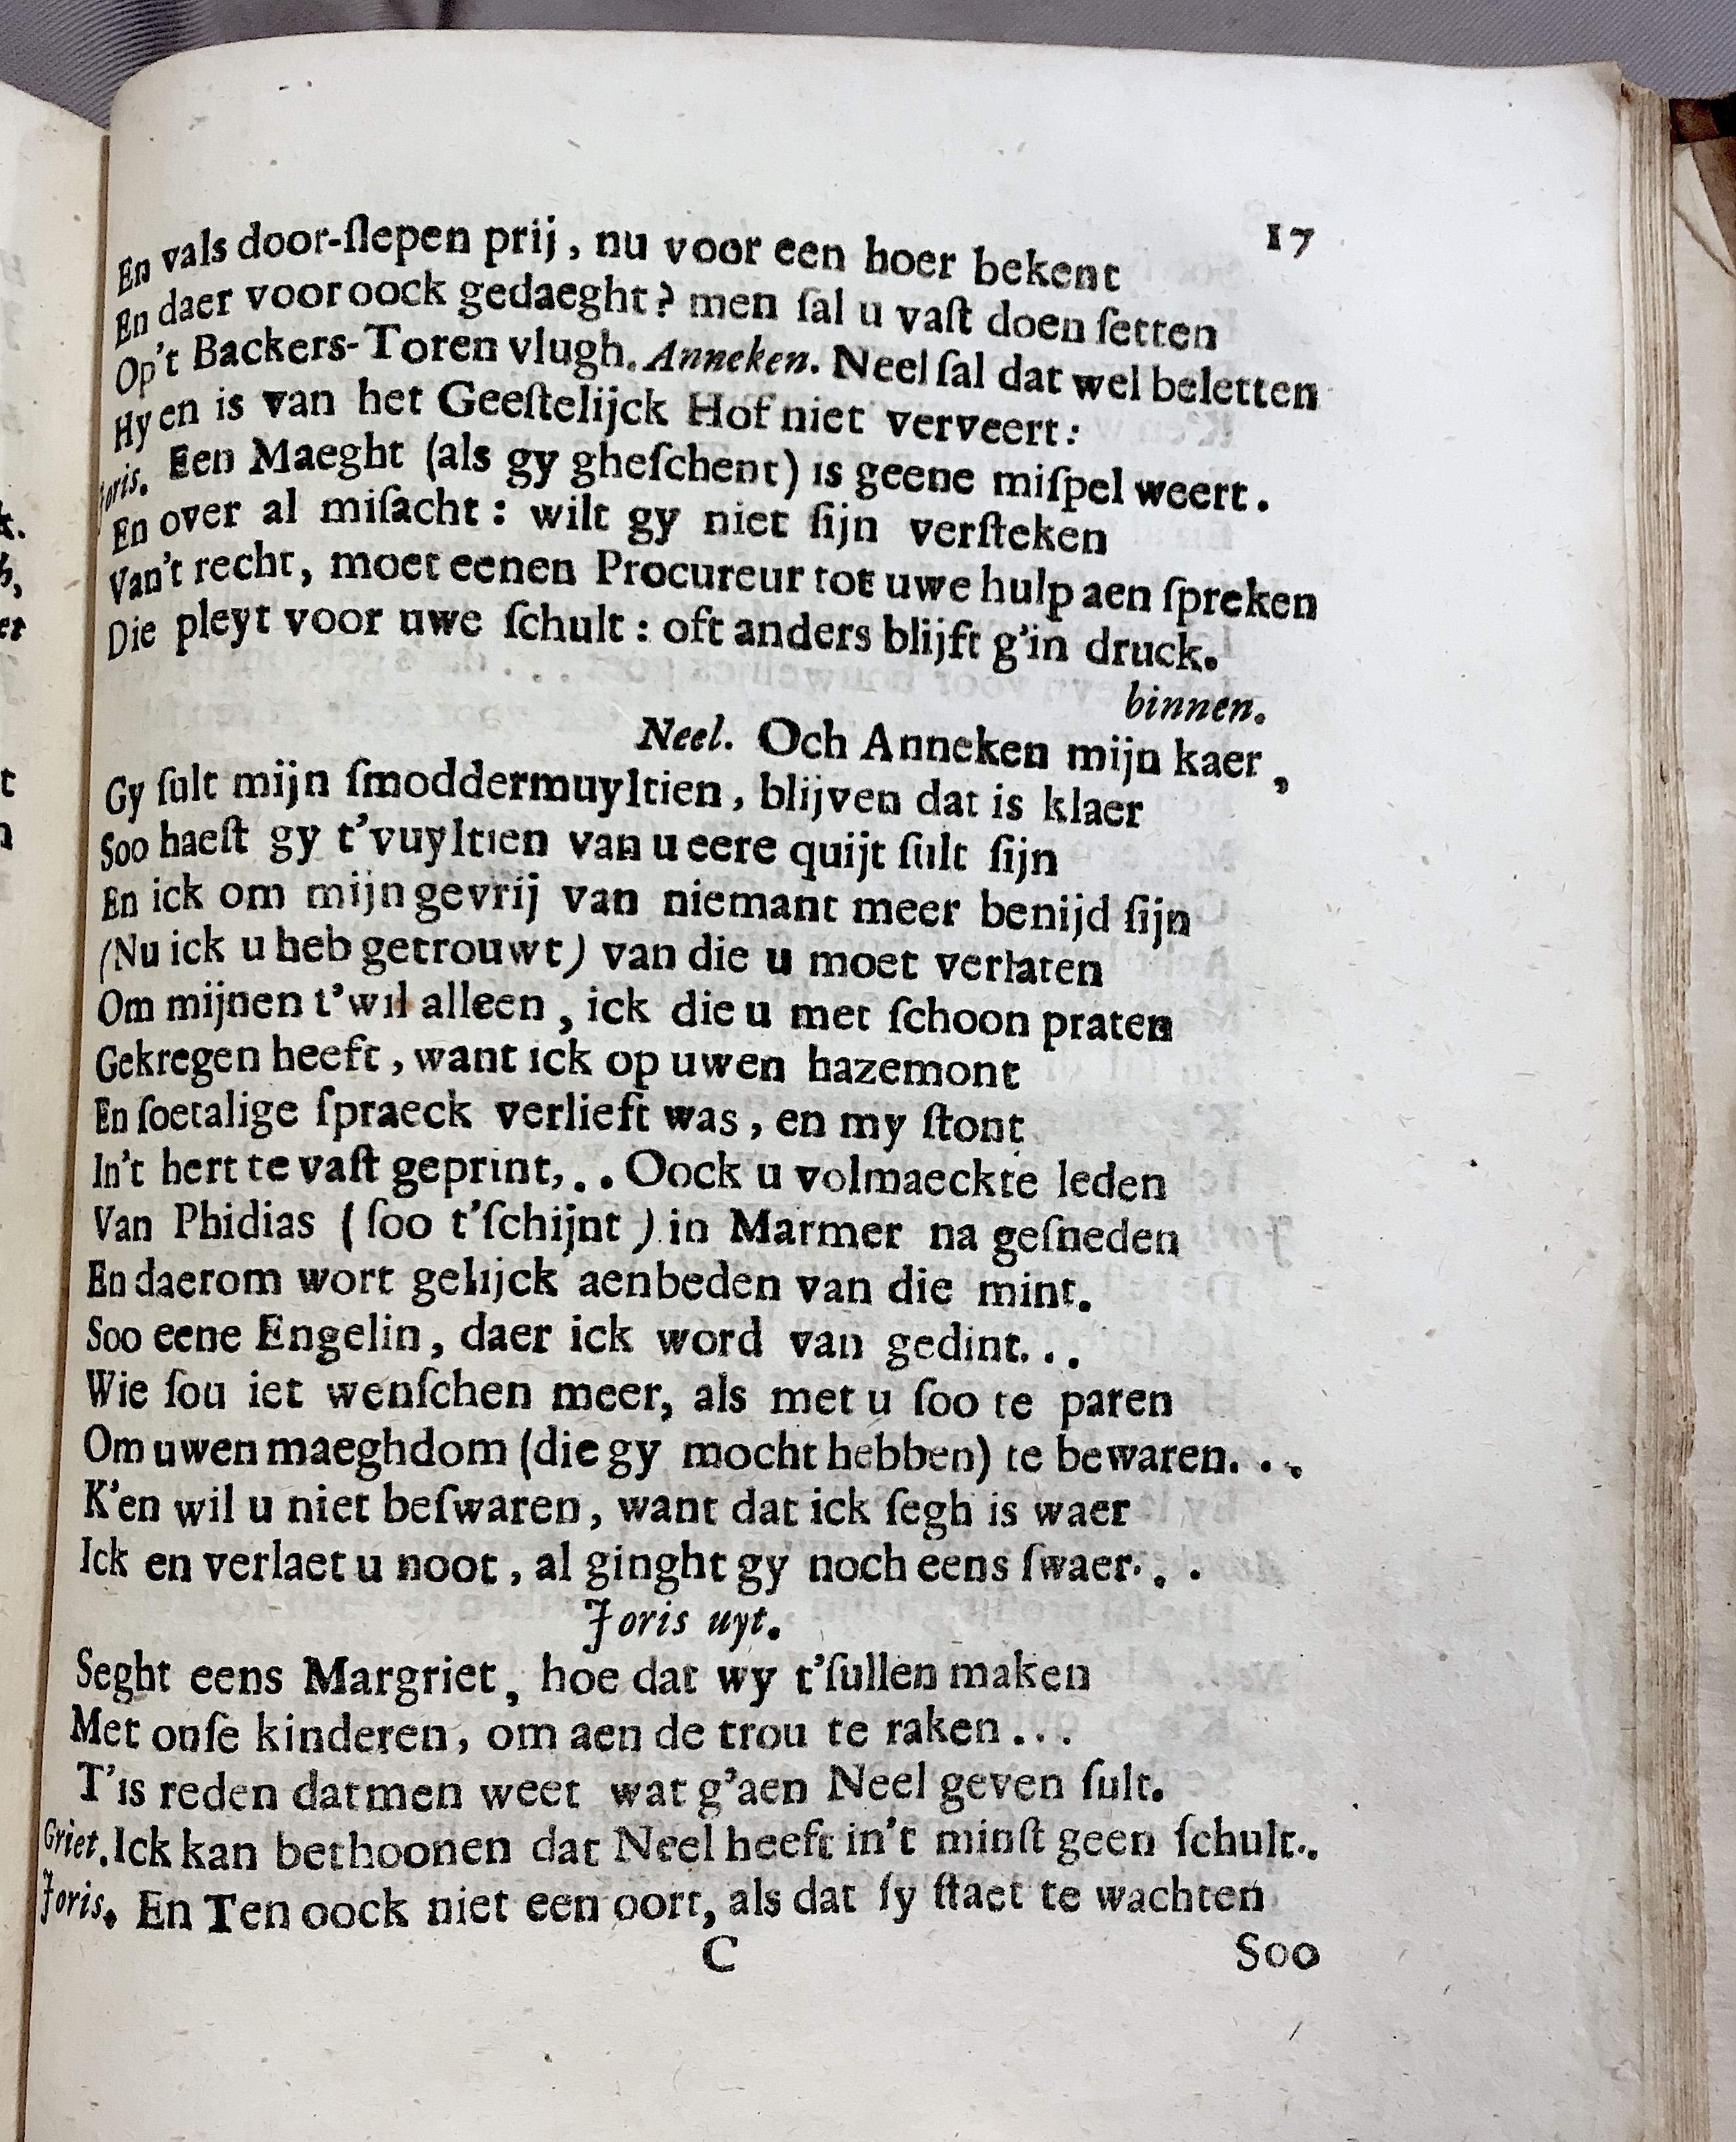 17
En vals door-ſlepen prij, nu voor een hoer bekent
En daer voor oock gedaeght? men ſal u vaſt doen ſetten
Op't Backers-Toren vlugh. Anneken. Neel ſal dat wel beletten
Hy en is van het Geeſtelijck Hof niet verveert:
Joris. Een Maeght (als gy gheſchent) is geene miſpel weert.
En over al miſacht: wilt gy niet ſijn verſteken
Van't recht, moet eenen Procureur tot uwe hulp aen ſpreken
Die pleyt voor uwe ſchult: oft anders blijft g'in druck.
binnen.
Neel. Och Anneken mijn kaer,
Gy ſult mijn ſmoddermuyltien, blijven dat is klaer
Soo haeſt gy t'vuyltien van u eere quijt ſult ſijn
En ick om mijn gevrij van niemant meer benijd ſijn
(Nu ick u heb getrouwt) van die u moet verlaten
Om mijnen t'wil alleen, ick die u met ſchoon praten
Gekregen heeft, want ick op uwen hazemont
En ſoetalige ſpraeck verlieft was, en my ſtont
In't hert te vaſt geprint,.. Oock u volmaeckte leden
Van Phidias (ſoo t'ſchijnt) in Marmer na geſneden
En daerom wort gelijck aenbeden van die mint.
Soo eene Engelin, daer ick word van gedint...
Wie ſou iet wenſchen meer, als met u ſoo te paren
Om uwen maeghdom (die gy mocht hebben) te bewaren...
K'en wil u niet beſwaren, want dat ick ſegh is waer
Ick en verlaet u noot, al ginght gy noch eens ſwaer...
Joris uyt.
Seght eens Margriet, hoe dat wy t'ſullen maken
Met onſe kinderen, om aen de trou te raken...
T'is reden datmen weet wat g'aen Neel geven ſult.
Griet. Ick kan bethoonen dat Neel heeft in't minſt geen ſchult..
Joris. En Ten oock niet een oort, als dat ſy ſtaet te wachten
C Soo